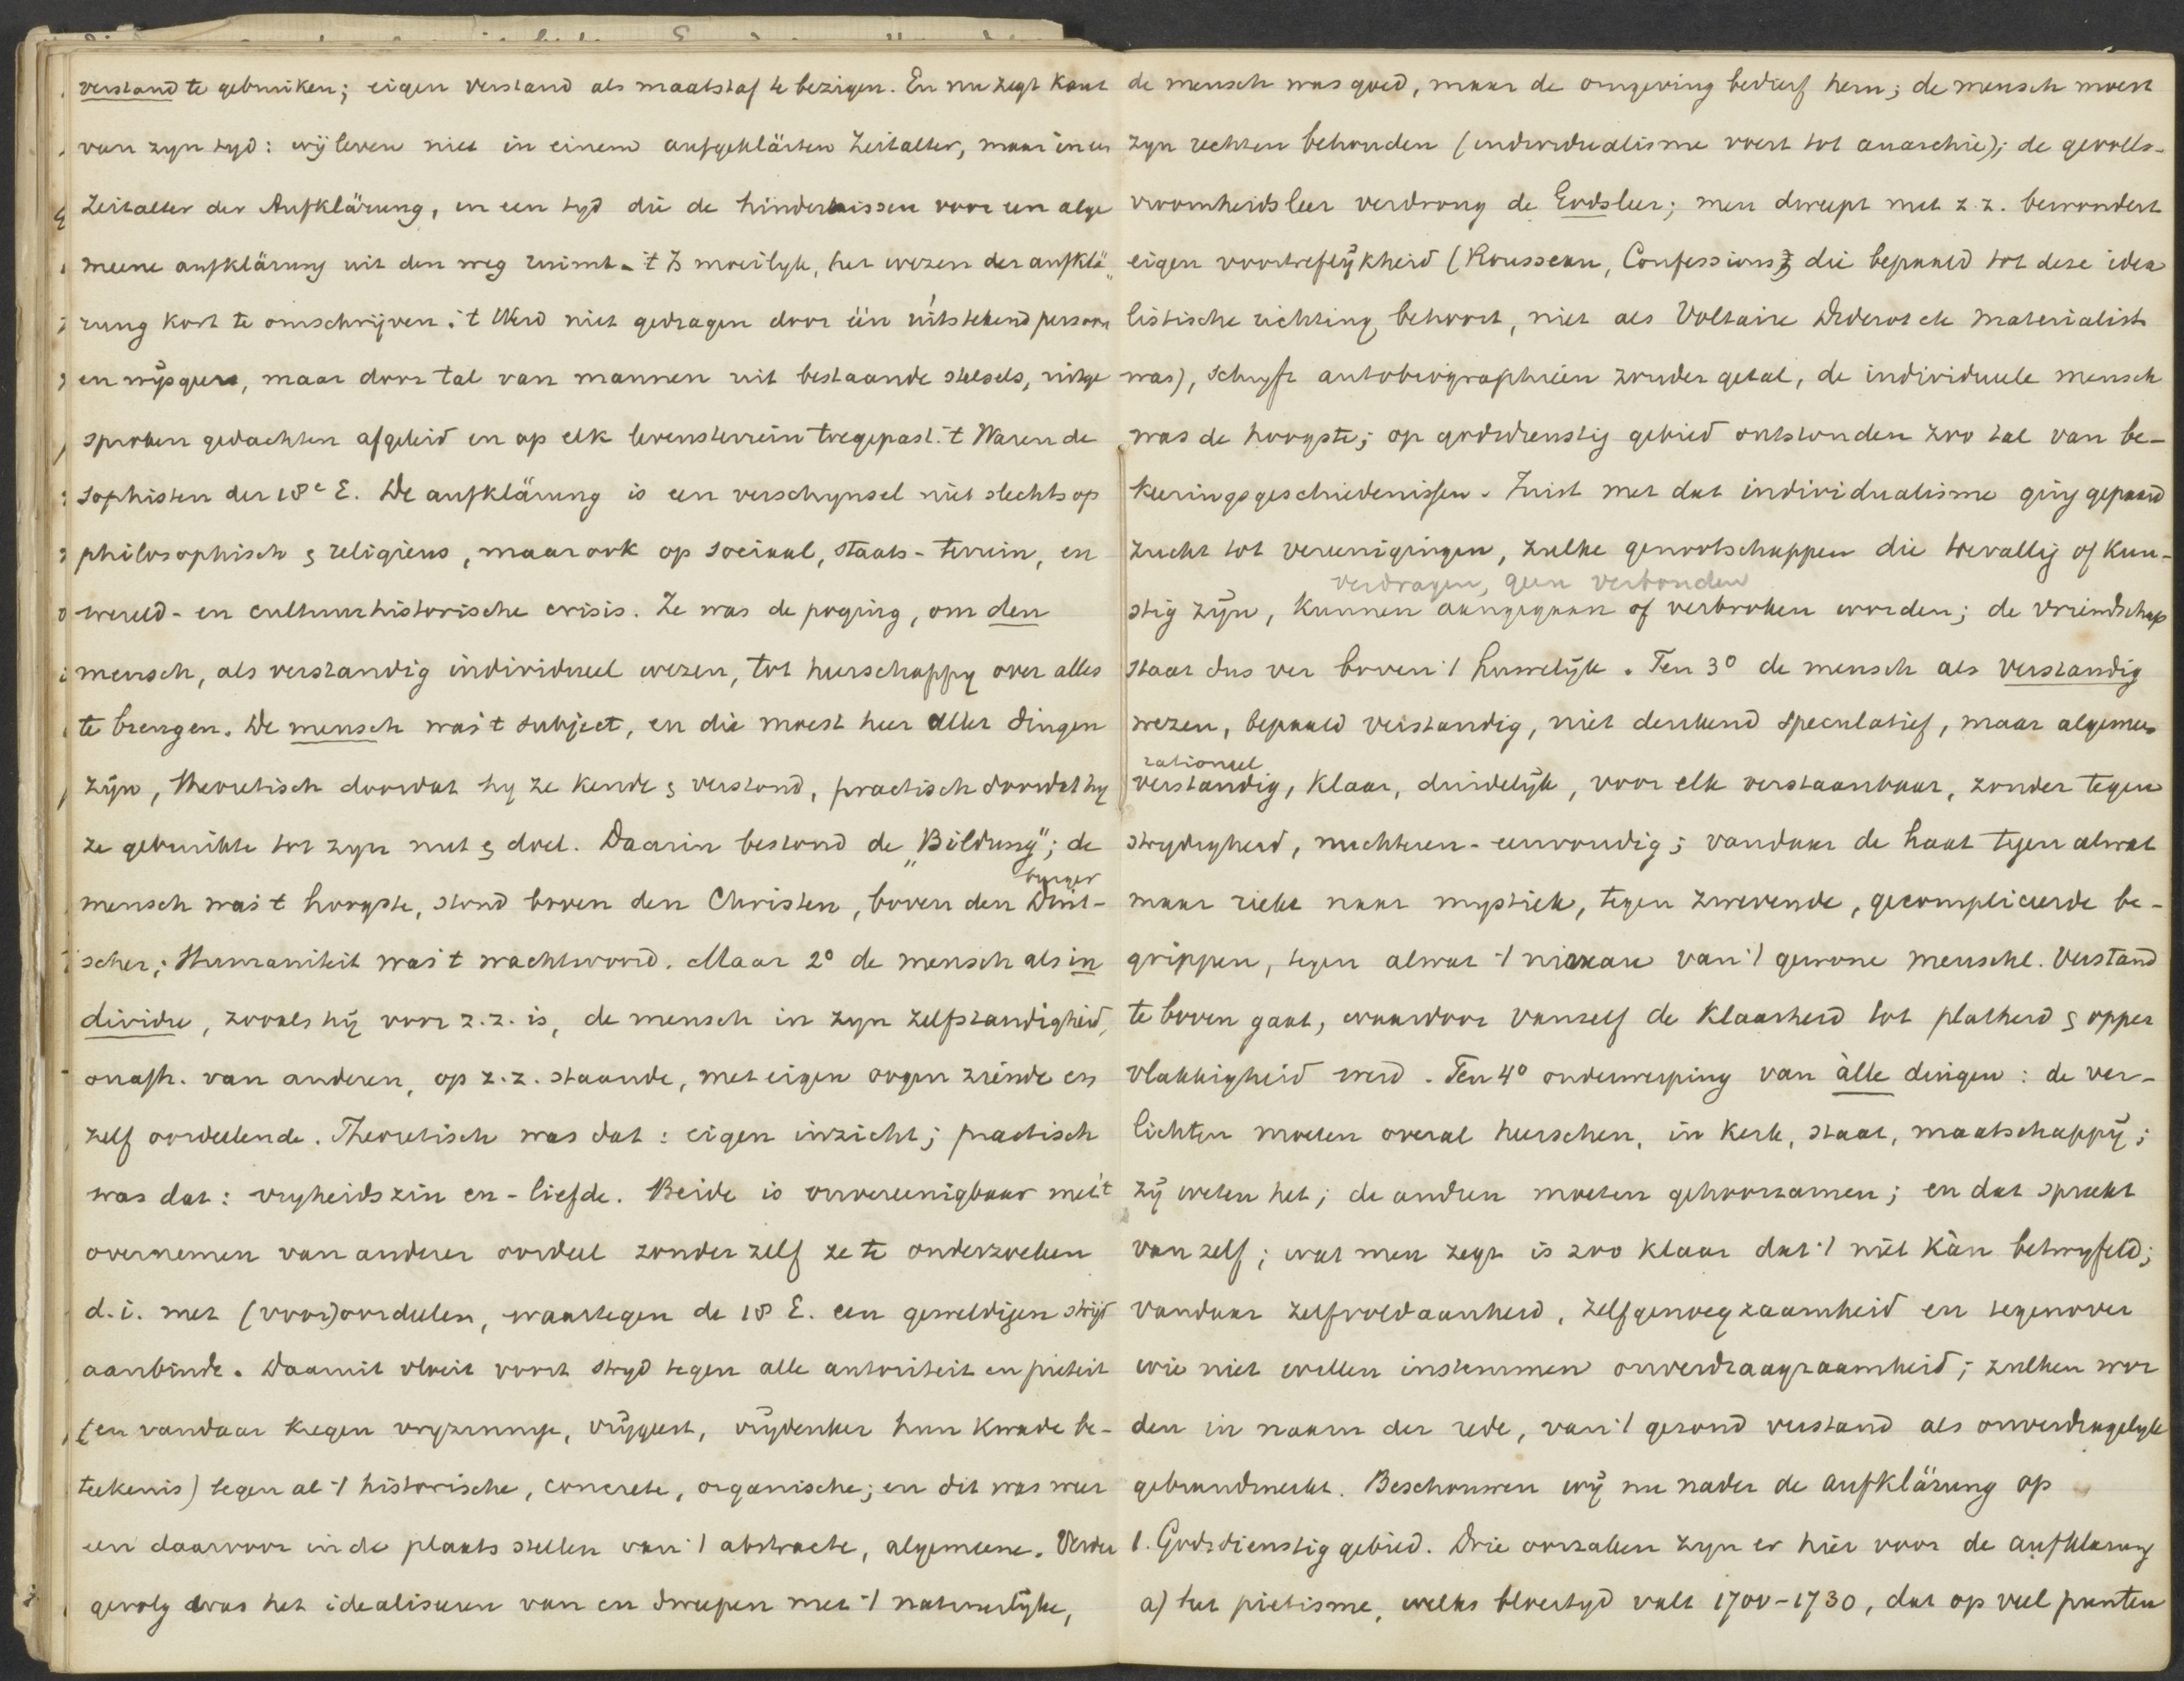 verstand te gebruiken; eigen verstand als maatstaf te bezigen. En nu zegt Kant
van zyn tyd: wij leven niet in einem aufgeklärten Zeitalter, maar in een
Zeitalter der Aufklärung, in een tyd die de hindernissen voor een alge
meene aufklärung uit den weg ruimt. 't Is moeilyk, het wezen der aufklä„
rung kort te omschrijven. 't Werd niet gedragen door één uitstekend persoon
en wijsgeer, maar door tal van mannen uit bestaande stelsels, uitge
sproken gedachten afgeleid en op elk levensterrein toegepast. 't Waren de
sophisten der 18e E. De aufklärung is een verschynsel niet slechts op
philosophisch & religieus, maar ook op sociaal, staats-terrein, en
wereld- en cultuurhistorische crisis. Ze was de poging, om den
mensch, als verstandig individueel wezen, tot heerschappy over alles
te brengen. De mensch was 't subject, en die moest heer aller dingen
zijn, theoretisch doordat hy ze kende & verstond, practisch doordat hy
ze gebruikte tot zyn nut & doel. Daarin bestond de „Bildung"; de
burger
mensch was 't hoogste, stond boven den Christen, boven den Duit-
scher; Humaniteit was 't wachtwoord. Maar 2° de mensch als in
dividu, zooals hij voor z.z. is, de mensch in zyn zelfstandigheid,
onafh. van anderen, op z.z. staande, met eigen oogen ziende en
zelf oordeelende. Theoretisch was dat: eigen inzicht; practisch
was dat: vryheidszin en -liefde. Beide is onvereenigbaar met 't
overnemen van anderer oordeel zonder zelf ze te onderzoeken
d.i. met (voor)oordeelen, waartegen de 18 E. een geweldigen strijd
aanbindt. Daaruit vloeit voort stryd tegen alle autoriteit en pieteit
(en vandaar kregen vryzinnige, vrijgeest, vrijdenker hun kwade be-
teekenis) tegen al 't historische, concrete, organische; en dit was weer
een daarvoor in de plaats stellen van 't abstracte, algemeene. Verder
gevolg was het idealiseren van en dweepen met 't natuurlijke,
de mensch was goed, maar de omgeving bedierf hem; de mensch moest
zyn rechten behouden (individualisme voert tot anarchie); de gevoels-
vroomheidsleer verdrong de Godsleer; men dweept met z.z. bewondert
eigen voortreflijkheid (Rousseau, Confessions, die bepaald tot deze idea
listische richting behoort, niet als Voltaire Diderot etc materialist
was), schryft autobiographieën zonder getal, de individueele mensch
was de hoogste; op godsdienstig gebied ontstonden zoo tal van be-
keeringsgeschiedenissen. Juist met dat individualisme ging gepaard
zucht tot vereenigingen, zulke genootschappen die toevallig of kun-
verdragen, geen verbonden
stig zijn, kunnen aangegaan of verbroken worden; de vriendschap
staat dus ver boven 't huwelijk. Ten 3° de mensch als verstandig
wezen, bepaald verstandig, niet denkend speculatief, maar algemeen
rationeel
verstandig, klaar, duidelijk, voor elk verstaanbaar, zonder tegen
strydigheid, nuchteren-eenvoudig; vandaar de haat tegen alwat
maar riekt naar mystiek, tegen zwevende, gecompliceerde be-
grippen, tegen alwat 't niveau van 't gewone menschl. verstand
te boven gaat, waardoor vanzelf de klaarheid tot platheid & opper
vlakkigheid werd. Ten 4° onderwerping van àlle dingen: de ver-
lichten moeten overal heerschen, in kerk, staat, maatschappij;
zij weten het; de andren moeten gehoorzamen; en dat spreekt
van zelf; wat men zegt is zoo klaar dat 't niet kàn betwyfeld;
vandaar zelfvoldaanheid, zelfgenoegzaamheid en tegenover
wie niet willen instemmen onverdraagzaamheid; zulken wor
den in naam der rede, van 't gezond verstand als onverdragelyk
gebrandmerkt. Beschouwen wij nu nader de aufklärung op
1. Godsdienstig gebied. Drie oorzaken zyn er hier voor de aufklarung
a) het pietisme, welks bloeityd valt 1700-1730, dat op veel punten